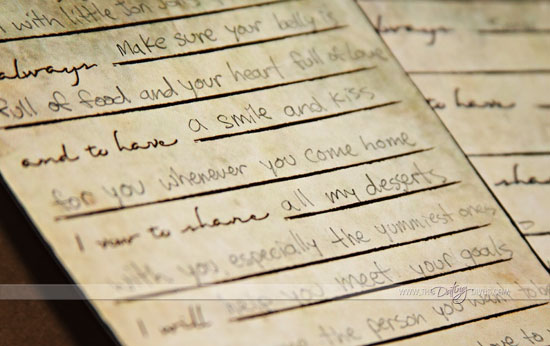 with little
always make sure your belly is
full of food and your heart full of love
and to have a smile and kiss
for you whenever you come home
I vow to share all my desserts
with you, especially the yummiest ones
I will help you meet your goals
the person you want to
always
to have
share
WWW.THE Dating DIVAS.COM